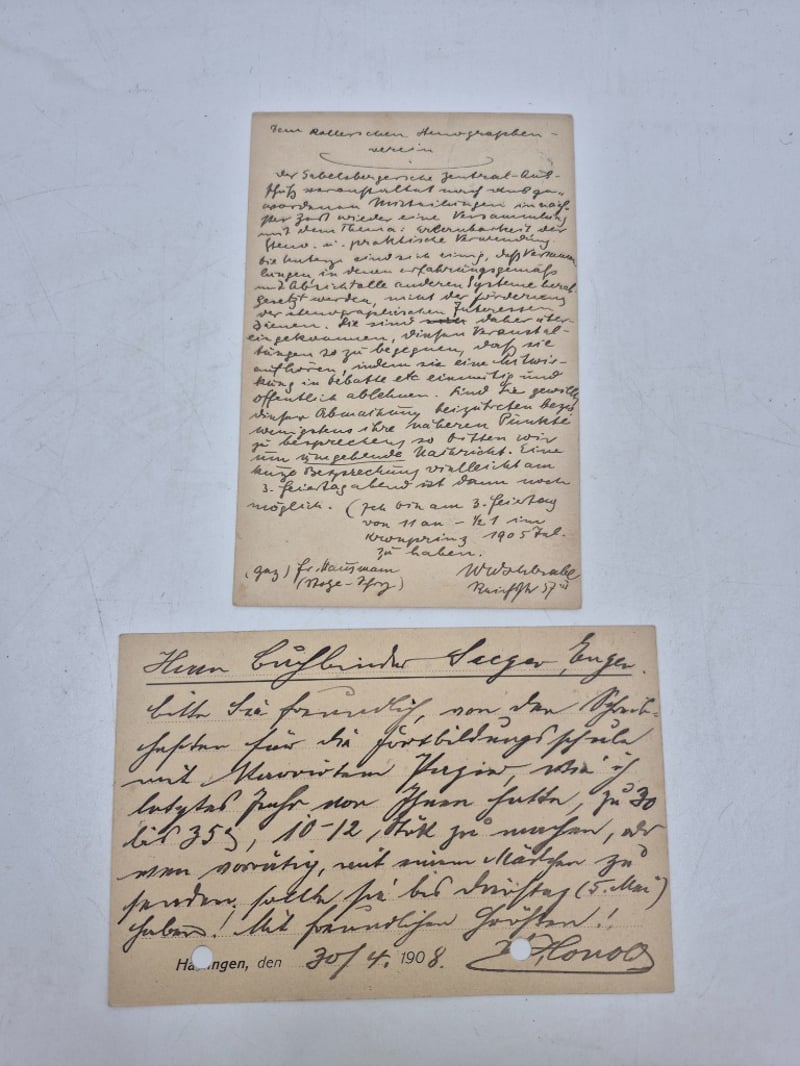 Dem Rollerschen Stenographen-
verein
Der Gabelsbergersche Zentral-Aus-
schuß veranstaltet nach uns ge-
wordenen Mitteilungen in näch-
ster Zeit wieder eine Versammlung
mit dem Thema: Erlernbarkeit der
Sten. u. praktische Verwendung.
Die Unterz. sind sich einig, daß Versamm-
lungen in denen erfahrungsgemäß
mit Absicht alle anderen Systeme herab-
gesetzt werden, nicht der Förderung
der stenographischen Interessen
dienen. Sie sind daher über-
eingekommen, diesen Veranstal-
tungen so zu begegnen, daß sie
aufhören, indem sie eine Mitwir-
kung in Debatte etc einmütig und
öffentlich ablehnen. Sind Sie gewillt
dieser Abmachung beizutreten bezw.
wenigstens ihre näheren Punkte
zu besprechen, so bitten wir
um umgehende Nachricht. Eine
kurze Besprechung vielleicht am
3. Feiertag abend ist dann noch
möglich. (Ich bin am 3. Feiertag
von 11 an – ½ 1 im
Kronprinz 1905 Tel.
zu haben.
(gez) Fr. Hausmann
(Stolze-Schrey) 57 III
Herrn Buchbinder Seeger, Eugen.
bitte Sie freundlich, von den Schreib-
heften für die Fortbildungsschule
mit Papier, wie ich
letztes Jahr von Ihnen hatte, zu 30
bis 35 ₰, 10-12 Stük zu machen, oder
wen vorrätig, mit einem Mädchen zu
senden, sollte sie bis Dienstag (5. Mai)
haben! Mit freundlichen Grüßen!
Hä ingen, den 30/4. 1908. Honold